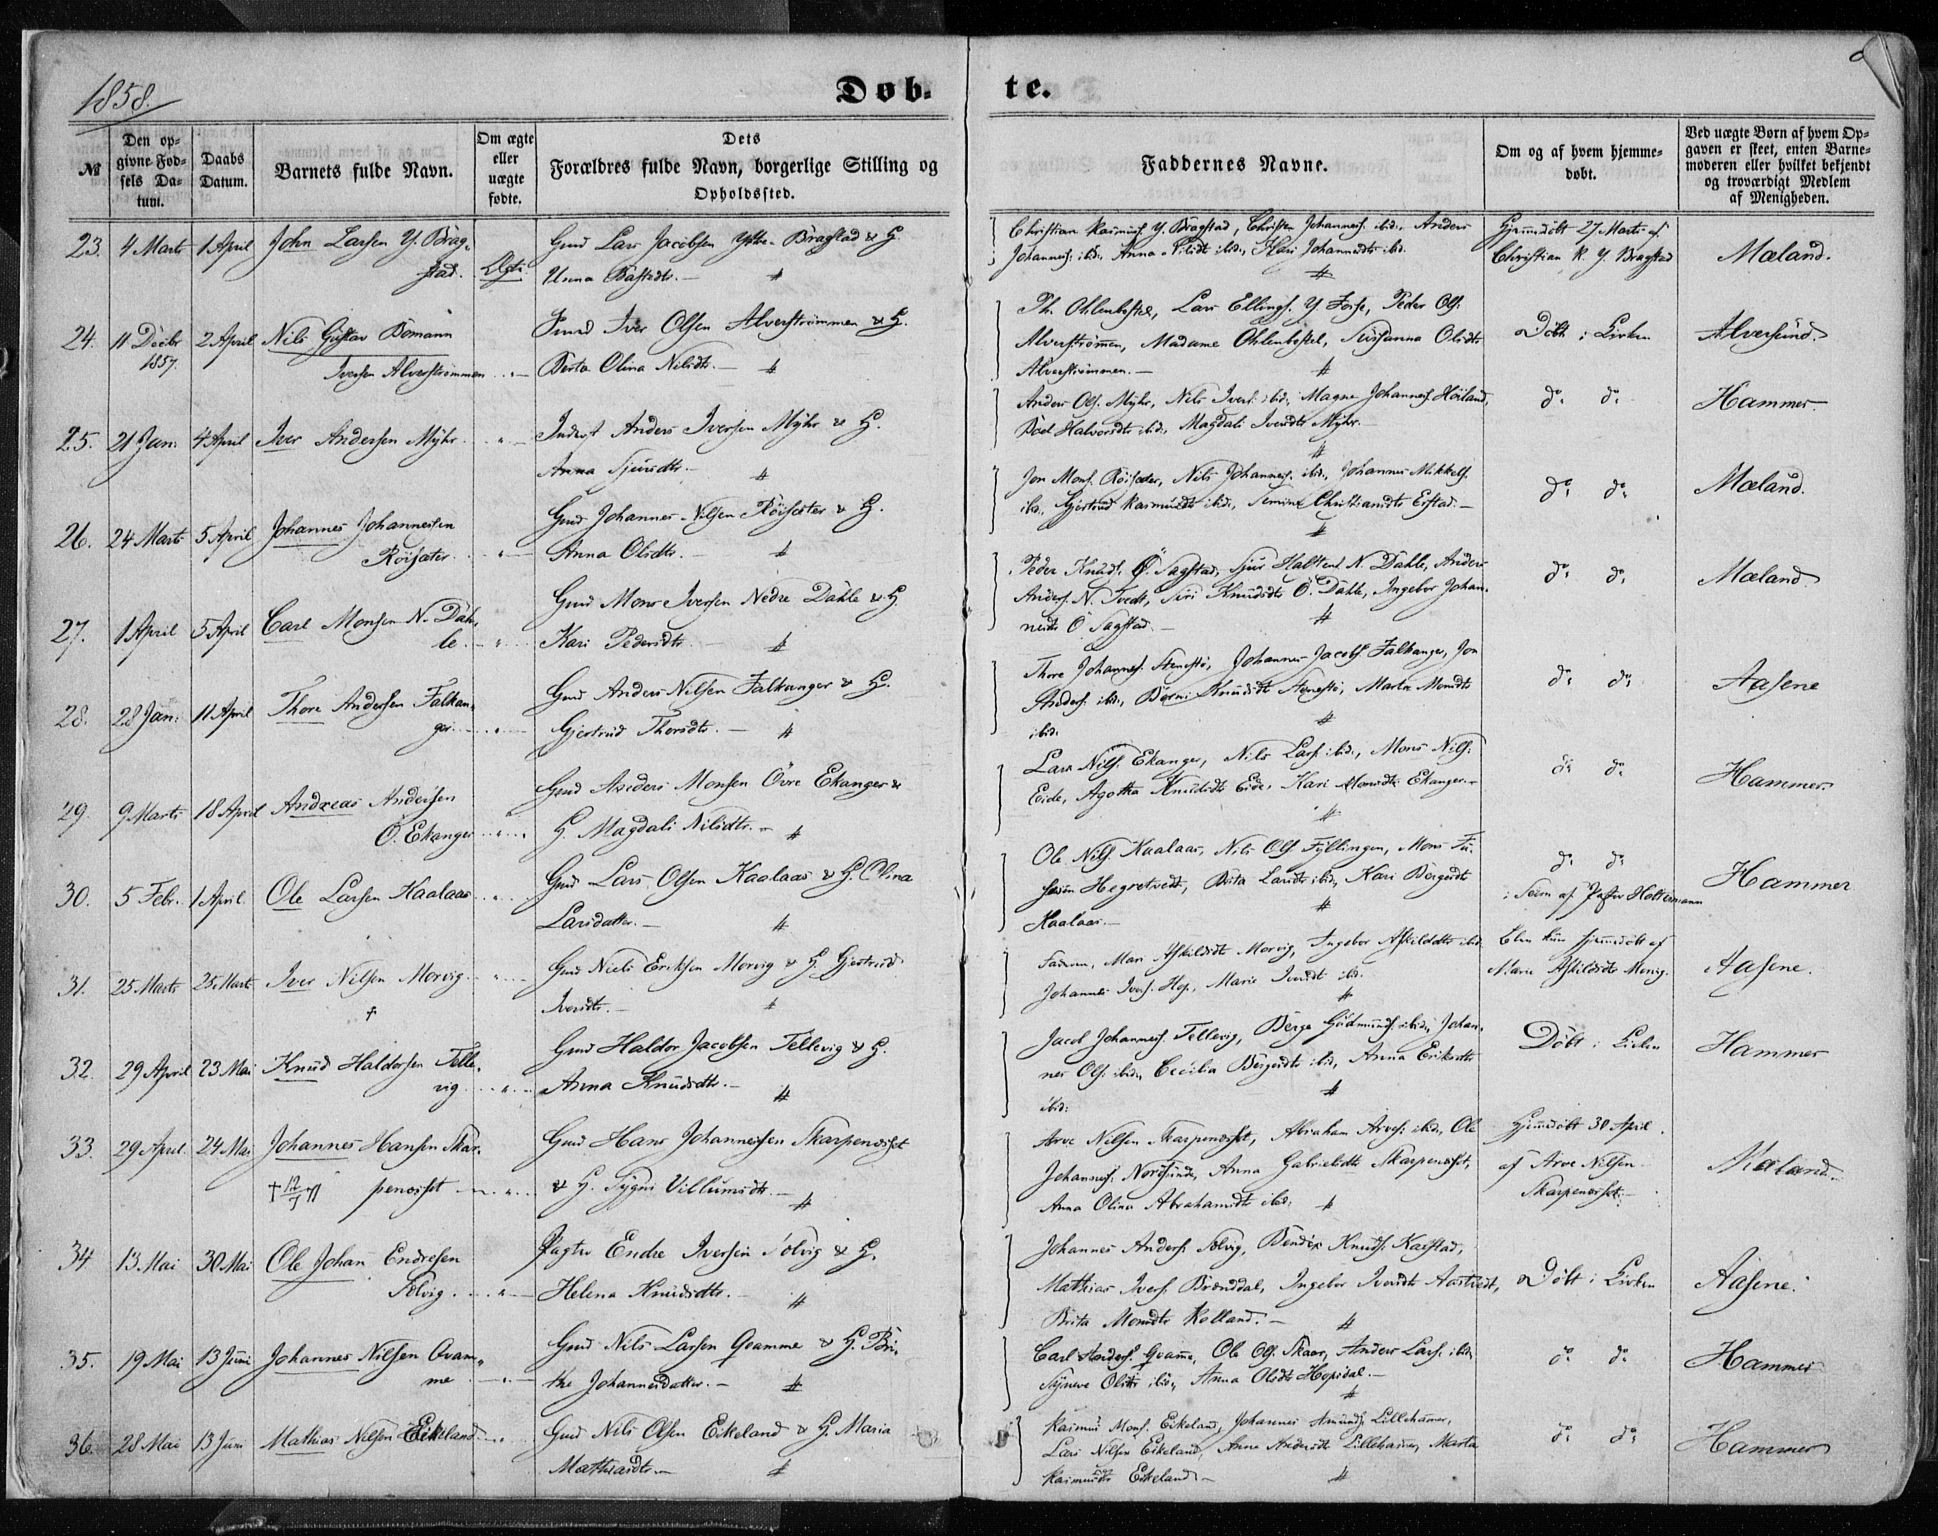 1858.
Døb-
te.
№
Den op-
givne Fød-
sels Da-
tum.
Daabs
Datum.
Barnets fulde Navn.
Om ægte
eller
uægte
fødte.
Dets
Forældres fulde Navn, borgerlige Stilling og
Opholdssted.
Faddernes Navne.
Om og af hvem hjemme-
døbt.
Ved uægte Børn af hvem Op-
gaven er skeet, enten Barne-
moderen eller hvilket bekjendt
og troværdigt Medlem
af Menigheden.
23. 4 Marts 1 April John Larsen Y. Brag-
stad. Ægte
Gmd Lars Jacobsen Ytre Bragstad & H.
Unna
Christian Rasmuss. Y. Bragstad, Christen Johanness. ibid., Anders
Johanness. ibid., Anna Nilsdt ibid., Kari Johannesdtr ibid.
Hjemmedøbt 27 Marts af
Christian R. Y. Bragstad
Mæland.
24. 11 Decbr 2 April Nils Gustav Bomann
1857. Iversen Alverstrømmen
Iver Olsen Alverstrømmen & H.
Berta Olina Nilsdtr.
Th. Ohlenbostel, Lars Ellings. Y. Fosse, Peder Ols.
Alverstrømmen, Madame Ohlenbostel, Susanna Olsdtr
Alverstrømmen.
Døbt i Kirken
Alversund.
25. 21 Jan. 4 April Iver Andersen Myhr
Inderst Anders Iversen Myhr & H.
Anna Sjursdtr.
Anders Ols. Myhr, Nils Ivers. ibid., Magne Johanness. Høiland,
Halvorsdtr ibid., Magdali Iversdtr Myhr.
do do
Hammer.
26. 24 Marts 5 April Johannes Johannessen
Røisæter
Gmd Johannes Nilsen Røisæter & H.
Anna Olsdtr.
Jon Mons. Røisæter, Nils Johanness. ibid., Johannes Mikkels.
ibid., Gjertrud Rasmusdtr ibid., Christiansdtr
do do
Mæland.
27. 1 April 5 April Carl Monsen N. Dah-
le
Gmd Mons Iversen Nedre Dahle & H.
Kari Pedersdtr.
Peder Knuds. Ø. Sagstad, Sjur N. Dahle, Anders
Anders. N. Tvedt, Siri Knudsdtr Ø. Dahle, Ingebor Johan-
nesdtr Ø Sagstad.
do do
Mæland
28. 28 Jan. 11 April Thore Andersen Falkan-
ger
Gmd Anders Nilsen Falkanger & H.
Gjertrud Thoresdtr.
Thore Johanness. Stenestø, Johannes Jacobs. Falkanger, Jon
Anders. ibid., Knudsdtr Stenestø, Marta Monsdtr
ibid.
do do
Aasene
29. 9 Marts 18 April Andreas Andersen
Ø. Ekanger
Gmd Anders Monsen Övre Ekanger &
H. Magdali Nilsdtr.
Lars Nils. Ekanger, Nils Lars. ibid., Mons Nils.
Eide, Agatha Knudsdtr Eide, Kari Monsdtr Ekanger.
do do
Hammer.
30. 5 Febr. 1 April Ole Larsen Kaalaas
Gmd Lars Olsen Kaalaas & H. Olina
Larsdatter.
Ole Nils. Kaalaas, Nils Ols. Fyllingen, Mons
Hegretvedt, Brita Larsdtr ibid., Kari Børgesdtr
Kaalaas.
do do
i Seim af Pastor Holtermann
Hammer
31. 25 Marts 25 Marts Iver Nilsen Morvig
†
Gmd Niels Eriksen Morvig & H. Gjertrud
Iversdtr.
Faderen, Mari Askildsdtr Morvig, Ingebor Askildsdtr ibid.
Johannes Ivers. Hop, Marie Iversdtr ibid.
Blev kun hjemmedøbt af
Marie Askildsdtr Morvig.
Aasene.
32. 29 April 23 Mai Knud Haldorsen Telle-
vig
Gmd Haldor Jacobsen Tellevig & H.
Anna Knudsdtr.
Jacob Johanness. Tellevig, Børge Gudmunds. ibid., Johan-
nes Ols. ibid., Cecilia Børgesdtr ibid., Anna Eriksdtr
ibid.
Døbt i Kirken
Hammer
33. 29 April 24 Mai Johannes Hansen Skar-
penesset
Gmd Hans Johannessen Skarpenesset
& H. Sygni Villumsdtr.
Arve Nilsen Skarpenesset, Abraham Arves. ibid., Ole
Johanness. Nordsundø, Anna Gabrielsdtr Skarpenesset,
Anna Olina Abrahamsdtr ibid.
Hjemmedøbt 30 April
af Arve Nilsen
Skarpenesset.
Mæland.
34 13 Mai 30 Mai Ole Johan Endresen
Solvig
Pagter Endre Iversen Solvig & H.
Helena Knudsdtr.
Johannes Anders. Solvig, Bendix Knuds. Kaastad,
Mathias Ivers. Brænddal, Ingebor Iversdtr Aastvedt,
Brita Monsdtr Kolland.
Døbt i Kirken
Aasene.
35. 19 Mai 13 Juni Johannes Nilsen Qvam-
me
Gmd Nils Larsen Qvamme & H. Bri-
the Johannesdatter.
Carl Anders. Qvamme, Ole Ols. Skaar, Anders Lars. ibid.
Synneve Olsdtr ibid., Anna Olsdtr Hopsdal.
do do
Hammer
36. 28 Mai 13 Juni Mathias Nilsen Eikeland
Gmd Nils Olsen Eikeland & H. Maria
Mathiasdtr.
Rasmus Mons. Eikeland, Johannes Amunds. Lillehammer,
Lars Nilsen Eikeland, Anne Andersdtr Lillehammer, Marta
Rasmusdtr Eikeland
do do
Hammer